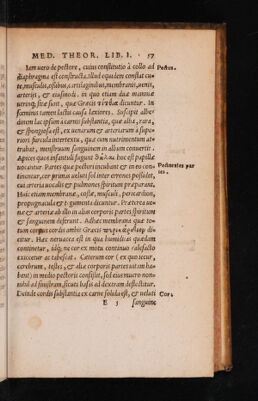 MED. THEOR. LIB. I. 57
Iam vero de pectore, cuius constitutio à collo ad Pectus.
diaphragma est constructa, illud equidem constat cute,
musculis, ossibus, cartilaginibus, membranis, venis,
arterijs, et
viring. sitæ sunt, quæ Græcis dicuntur. In
fœminis tamen lactis causa laxiores. Suscipit alterum
ac ipsam à carnis substantia, quæ alba, rara,
& spongiosa est, ex venarum & arteriarum à superioribus
furcula intertextu, quæ cum nutrimentum attrahat,
menstruum sanguinem in album convertit.
Apici quos infantuli sugunt hoc est papillæ
vocantur. Partes quæ pectore & in eo continentur, Pectorales partes.
cor primas veluti sol inter errones possidet,
cui arteria vocalis & pulmones spiritum præparant.
Huic etiam membranæ, costæ, musculi, pericardion,
propugnacula & tegumenta dicuntur. Præterea venæ
& arteriæ alibi in alium corporis partes spiritum
& sanguinem deferunt. Adhæc membrana quæ totum
cordis ambit Græcis dicitur.
Hæc nervacea est in qua humor quidam
continetur, ídq, ne cor ex motu continuo calefactio
exiccetur ac tabescat. Cæterum cor (ex quo uecur,
cerebrum, testes, & aliæ corporis partes vitam habent)
in medio pectoris consistit, sed eius mucro nonnihil
ad sinistram, sicuti basis ad dextram deflectitur.
Deinde cordis substantia ex carne solida est, & veluti Cor.
E 3 sanguine